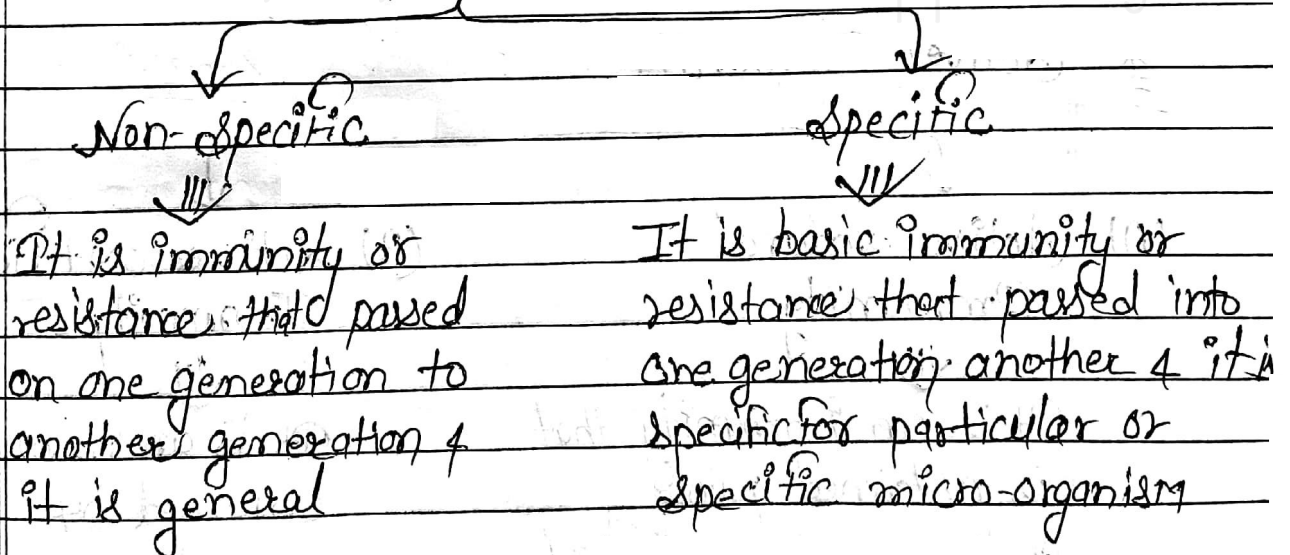 Non-Specific
Specific
It is immunity or
resistance that passed
on one generation to
another generation &
it is general
It is basic immunity or
resistance that passed into
one generation another & it is
specific for particular or
specific micro-organism